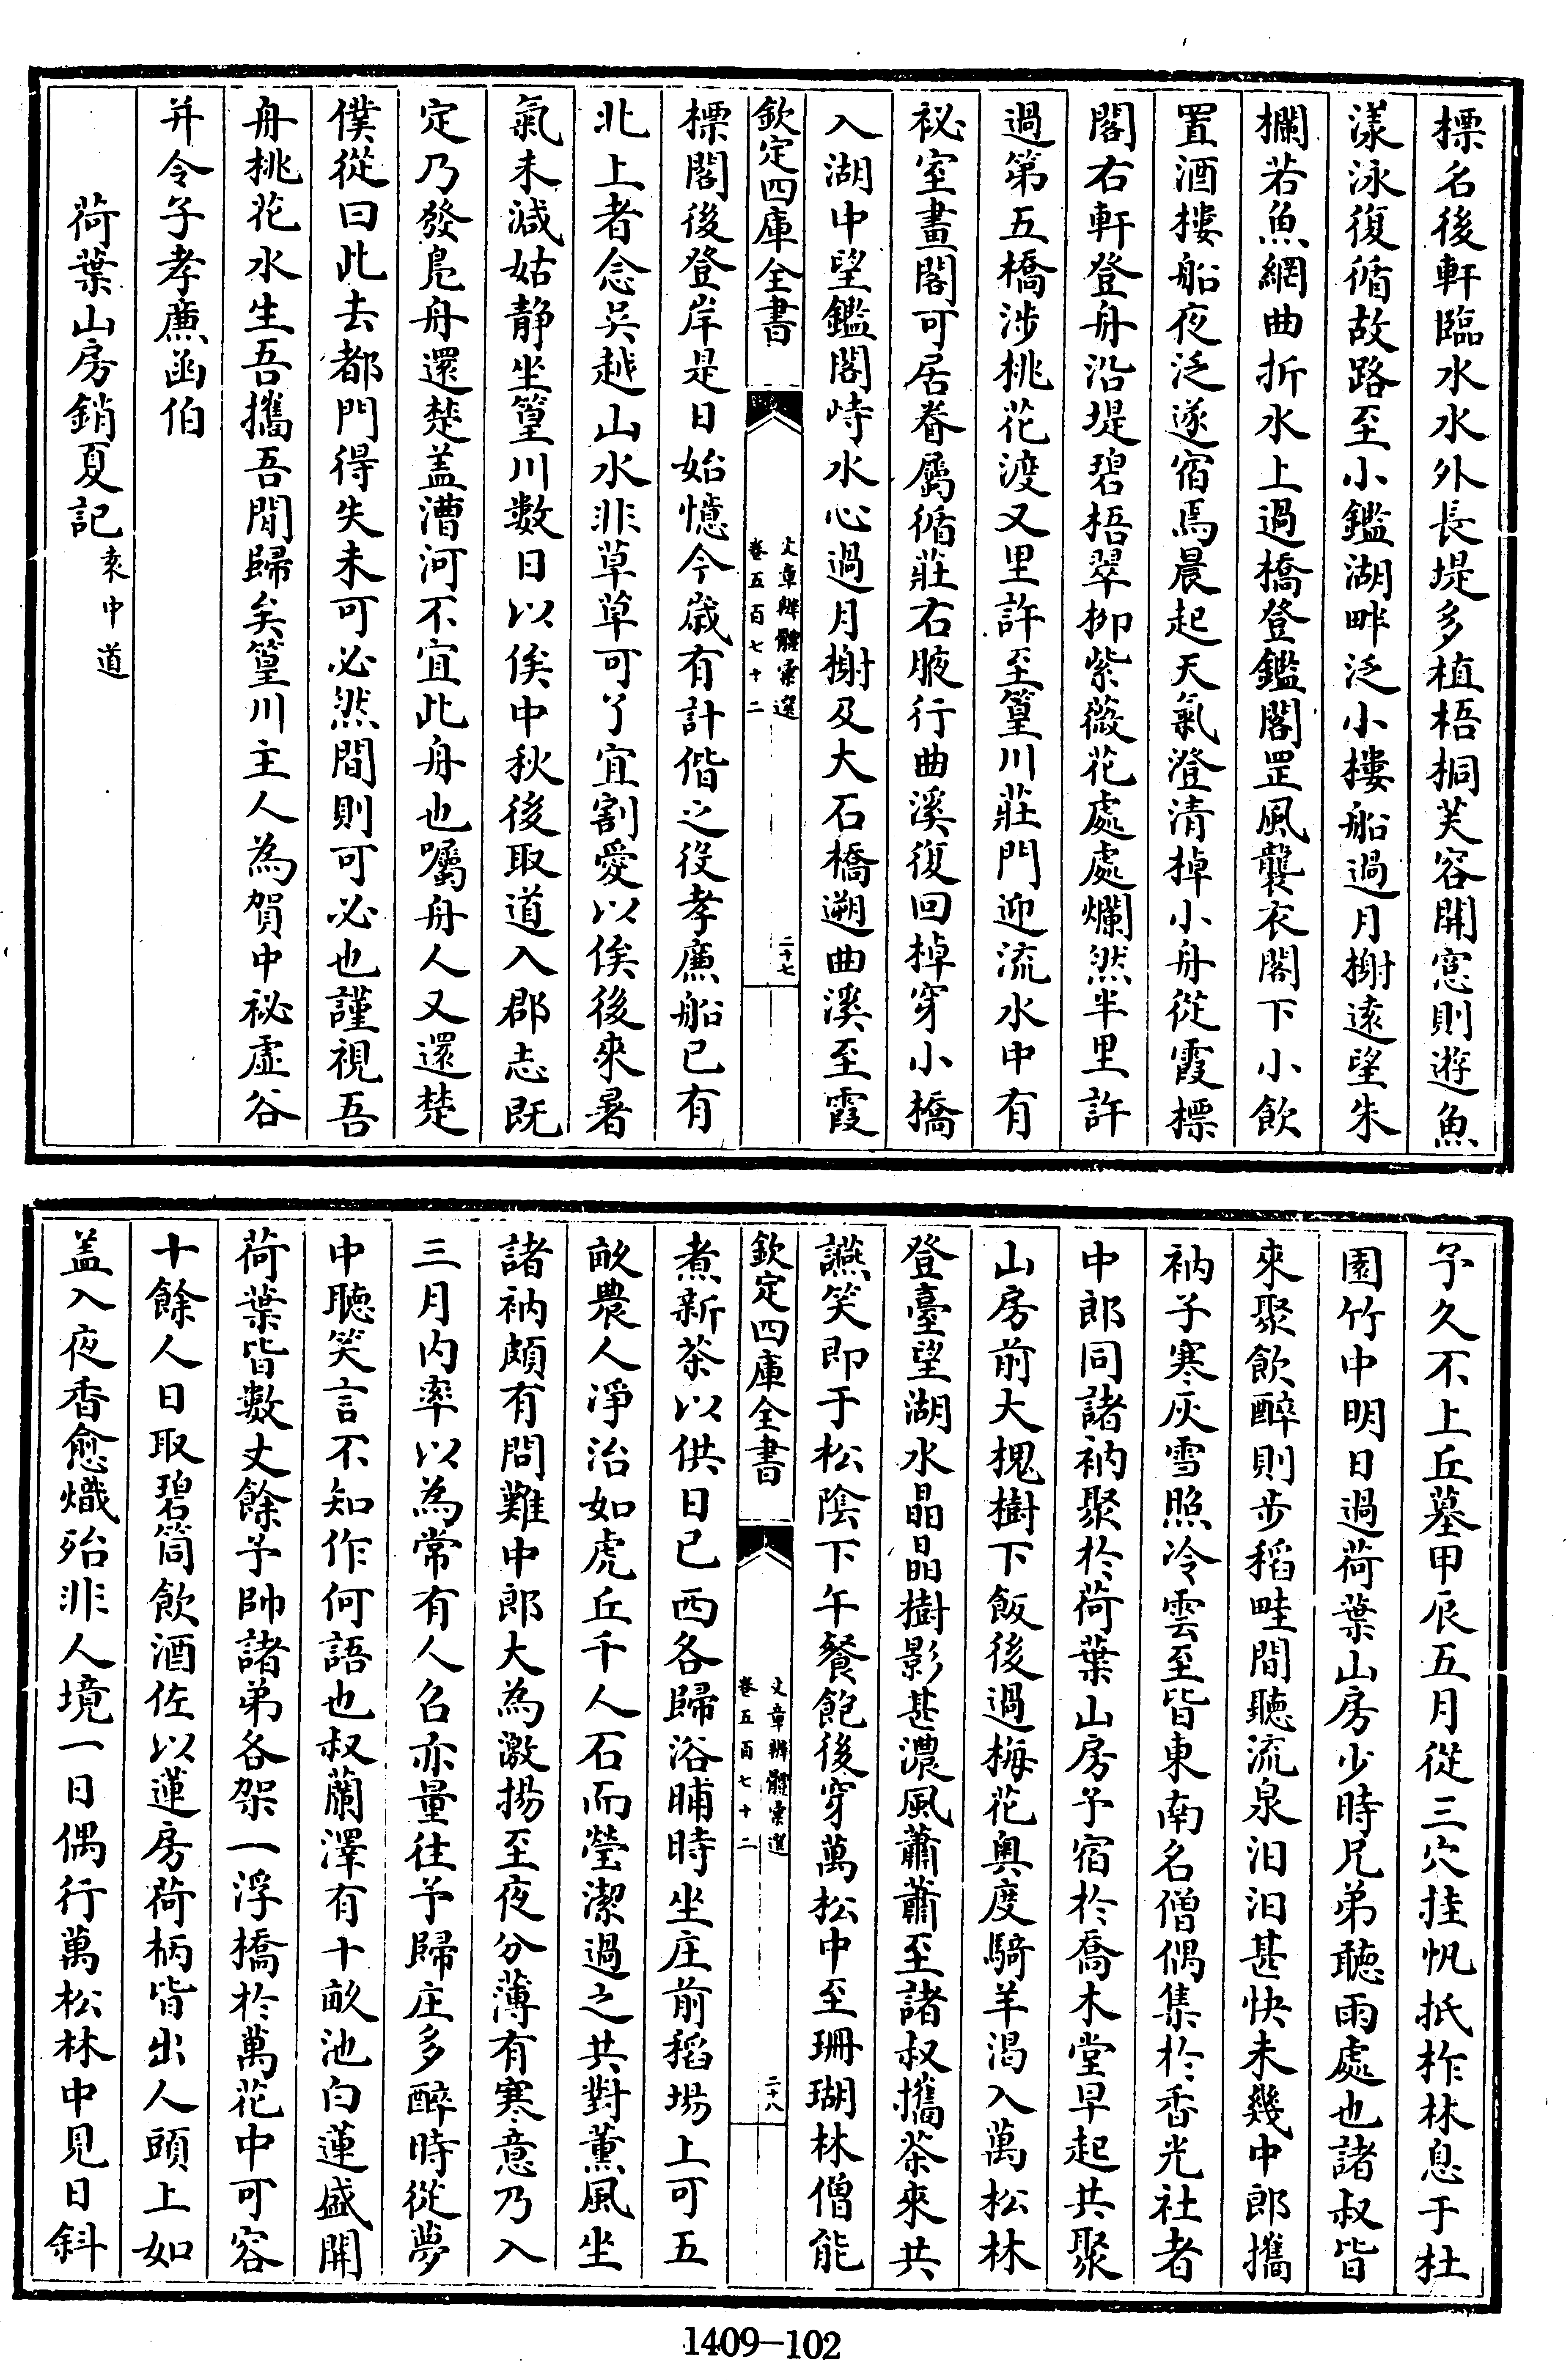 標名後軒臨水水外長堤多植梧桐芙容開窓則遊魚
漾泳復循故路至小鑑湖畔泛小樓船過月榭遠望朱
欄若魚網曲折水上過橋登鑑閣罡風襲衣閣下小飲
置酒樓船夜泛遂宿焉晨起天氣澄清掉小舟從霞標
閣右軒登舟沿堤碧梧翠柳紫薇花處處爛然半里許
過第五橋涉桃花渡又里許至篔川莊門迎流水中有
祕室畫閣可居眷屬循莊右腋行曲溪復回掉穿小橋
入湖中望鑑閣峙水心過月榭及大石橋遡曲溪至霞
欽定四庫全書
文章辨體彙選
卷五百七十二
二十七
標閣後登岸是日始憶今歳有計偕之役孝廉船已有
北上者念吳越山水非草草可了宜割愛以俟後來暑
氣未減姑静坐篔川數日以俟中秋後取道入郡志既
定乃發鳬舟還楚盖漕河不宜此舟也囑舟人又還楚
僕從曰此去都門得失未可必然間則可必也謹視吾
舟桃花水生吾攜吾閒歸矣篔川主人為賀中祕虛谷
并令子孝廉函伯
荷葉山房銷夏記 袁中道
予久不上丘墓甲辰五月從三穴挂帆抵柞林息于杜
園竹中明日過荷葉山房少時兄弟聽雨處也諸叔皆
來聚飲醉則步稻畦間聽流泉汩汩甚快未幾中郎攜
衲子寒灰雪照冷雲至皆東南名僧偶集於香光社者
中郎同諸衲聚於荷葉山房予宿於喬木堂早起共聚
山房前大槐樹下飯後過梅花奥度騎羊渴入萬松林
登臺望湖水晶晶樹影甚濃風蕭蕭至諸叔攜茶來共
讌笑即于松陰下午餐飽後穿萬松中至珊瑚林僧能
欽定四庫全書
文章辨體彙選
卷五百七十二
二十八
煮新茶以供日已西各歸浴晡時坐庄前稻場上可五
畝農人淨治如虎丘千人石而瑩潔過之共對薰風坐
諸衲頗有問難中郎大為激揚至夜分薄有寒意乃入
三月内率以為常有人召亦量往予歸庄多醉時從夢
中聽笑言不知作何語也叔蘭澤有十畝池白蓮盛開
荷葉皆數丈餘予帥諸弟各架一浮橋於萬花中可容
十餘人日取碧筒飲酒佐以蓮房荷柄皆出人頭上如
盖入夜香愈熾殆非人境一日偶行萬松林中見日斜
1409-102